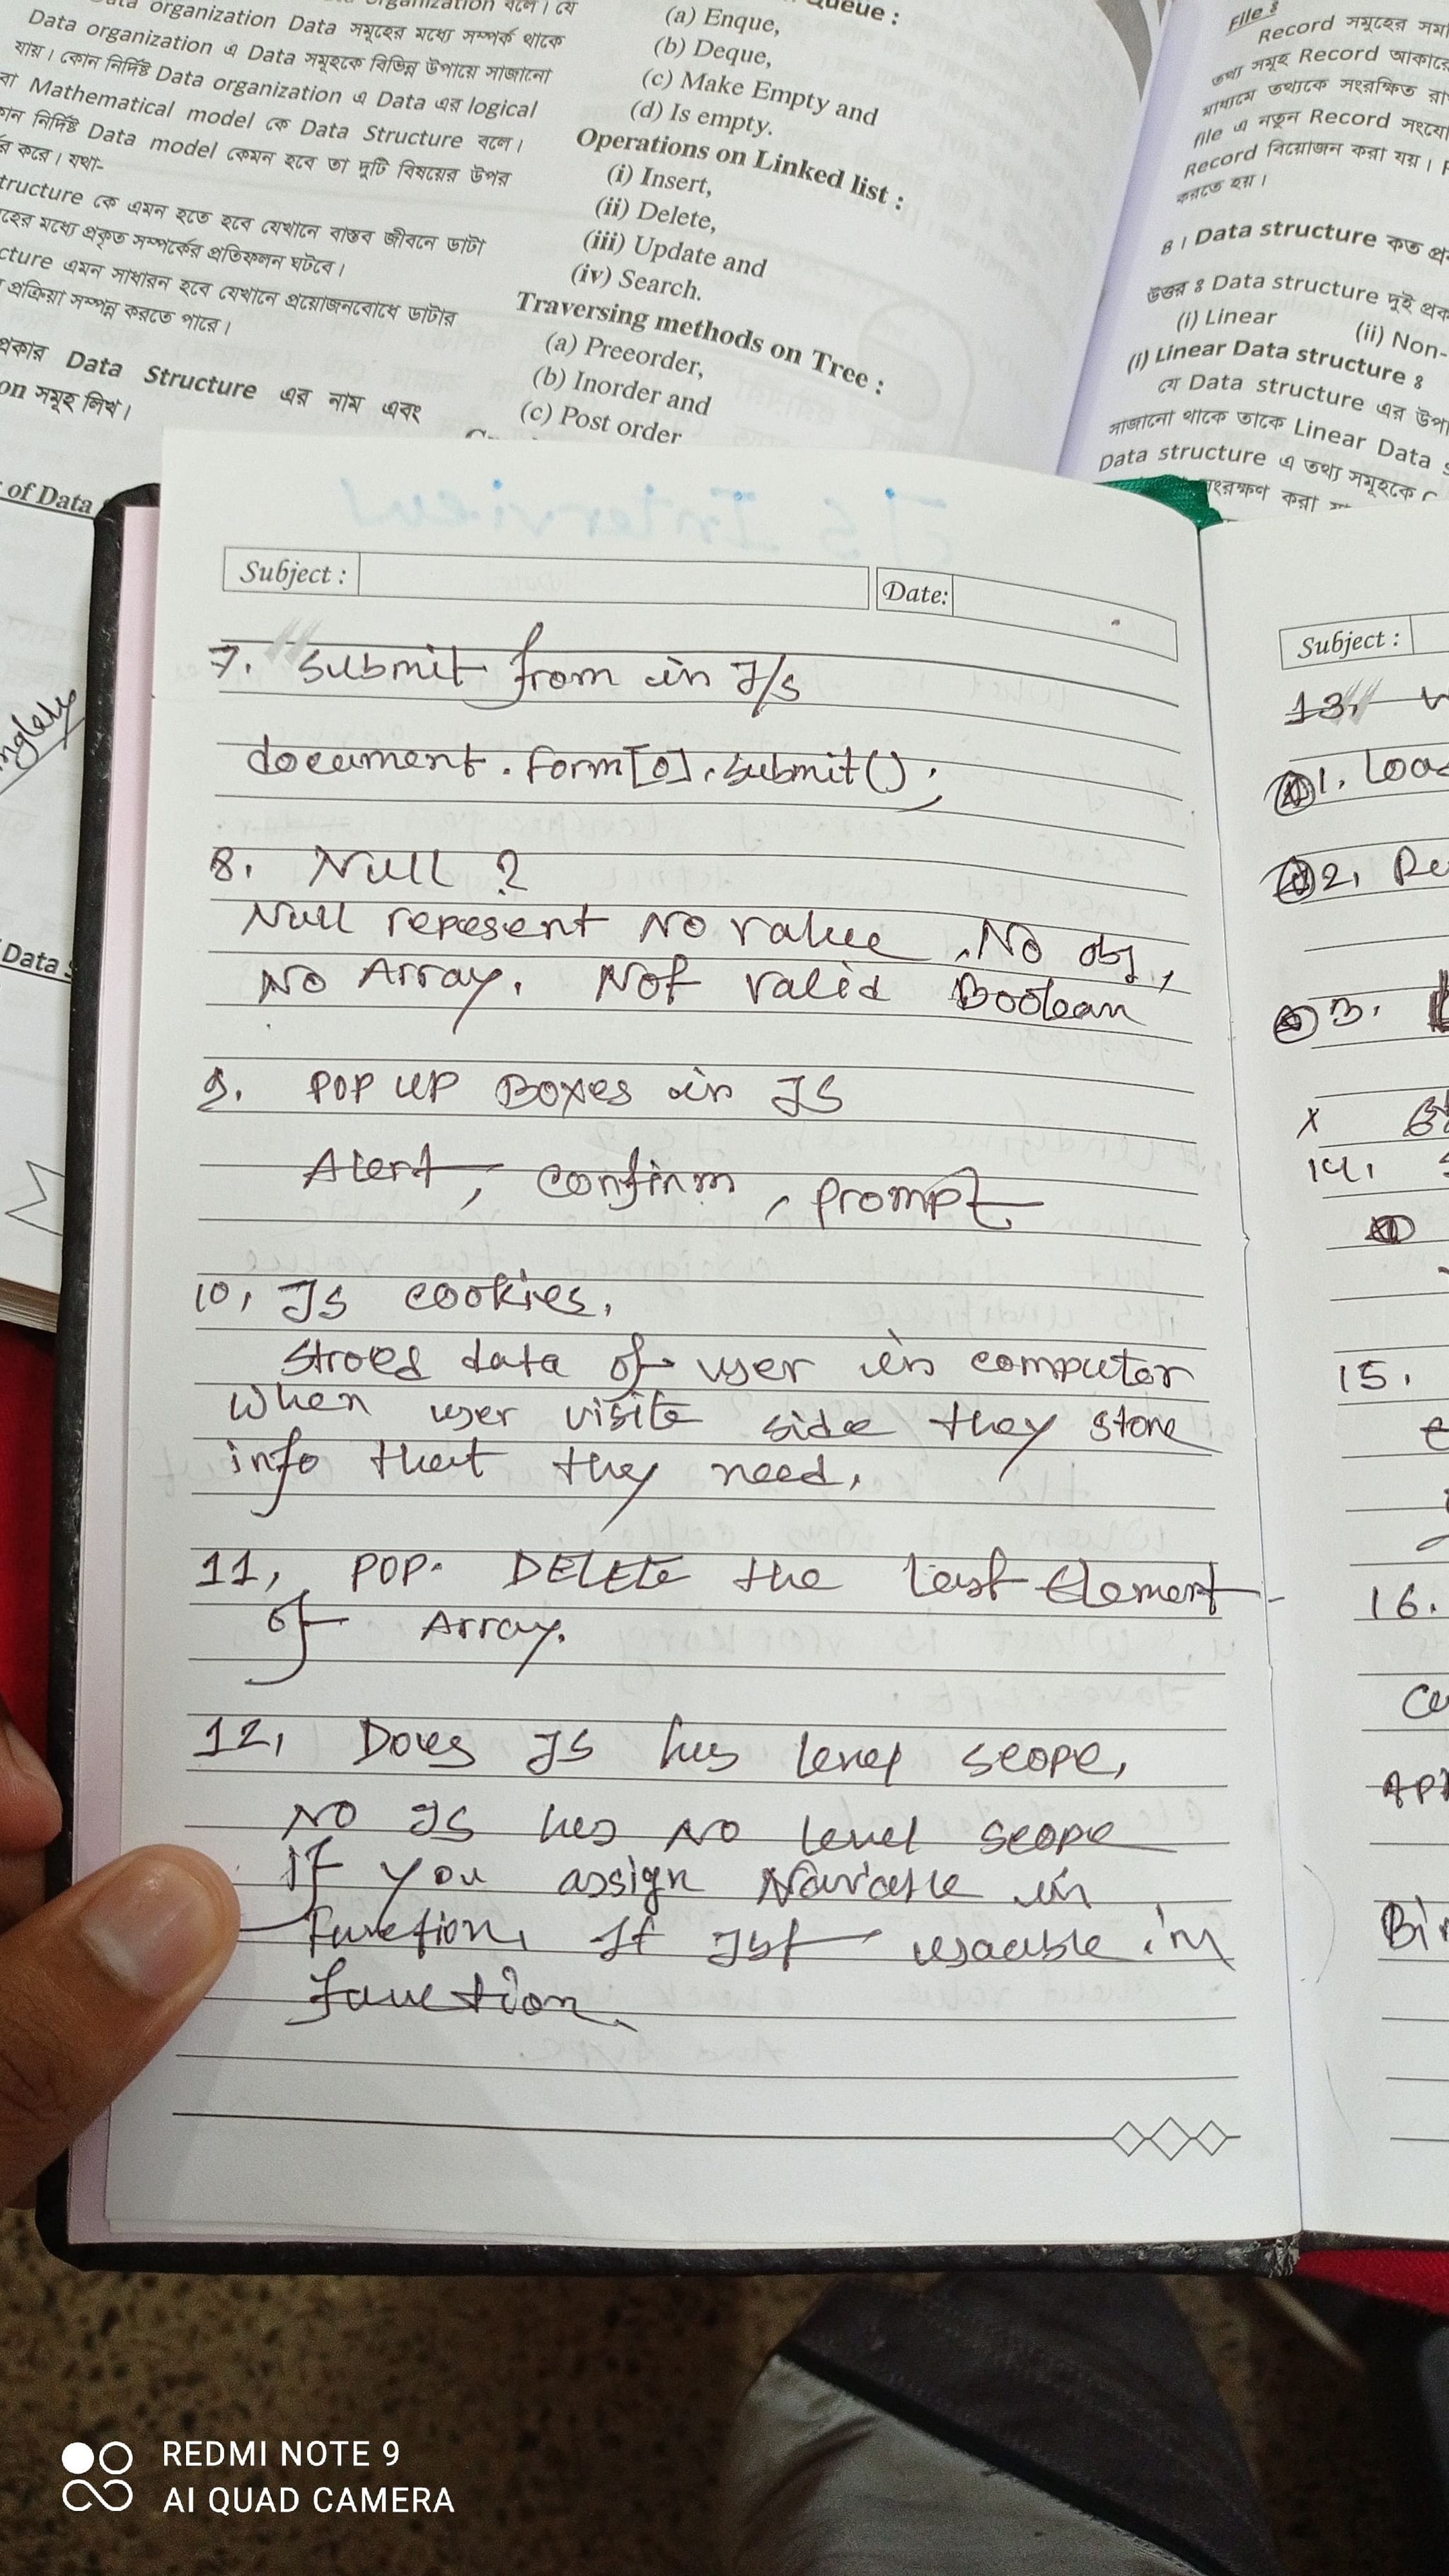 organization Data সমূহের মধ্যে সম্পর্ক থাকে
Data organization এ Data সমূহকে বিভিন্ন উপায়ে সাজানো
যায়। কোন নির্দিষ্ট Data organization এ Data এর logical
বা Mathematical model কে Data Structure বলে।
নির্দিষ্ট Data model কেমন হবে তা দুটি বিষয়ের উপর
র করে। যথা-
tructure কে এমন হতে হবে যেখানে বাস্তব জীবনে ডাটা
হের মধ্যে প্রকৃত সম্পর্কের প্রতিফলন ঘটবে।
cture এমন সাধারন হবে যেখানে প্রয়োজনবোধে ডাটার
প্রক্রিয়া সম্পন্ন করতে পারে।
প্রকার Data Structure এর নাম এবং
on সমূহ লিখ।
of Data
Data
(a) Enque,
(b) Deque,
(c) Make Empty and
(d) Is empty.
Operations on Linked list :
(i) Insert,
(ii) Delete,
(iii) Update and
(iv) Search.
Traversing methods on Tree :
(a) Preeorder,
(b) Inorder and
(c) Post order
File ঃ
Record সমূহের সমা
তথ্য সমূহ Record আকারে
মাধ্যমে তথ্যকে সংরক্ষিত রা
file এ নতুন Record সংযো
Record বিয়োজন করা যয়।
করতে হয়।
৪। Data structure কত প্র
উত্তর ঃ Data structure দুই প্রক
(i) Linear (ii) Non-
(i) Linear Data structure ঃ
যে Data structure এর উপা
সাজানো থাকে তাকে Linear Data
Data structure এ তথ্য সমূহকে
সংরক্ষণ করা
Subject : Date:
7. Submit from in J/s
document.form[0].submit();
8. Null ?
Null repesent No value, No obj,
No Array. Not valid Boolean
9. POP UP Boxes in JS
Alert, confirm, prompt
10, Js cookies.
Stroed data of user in computer
When user visite side they store
info that they need.
11, POP. DELETE the last Element
of Array.
12, Does JS has level scope,
NO JS has NO level scope
If you assign in
function, It Jst usaeble in
function
Subject :
13.
1. Loa
2. Re
3.
X
14.
15.
16.
Bi
REDMI NOTE 9
AI QUAD CAMERA